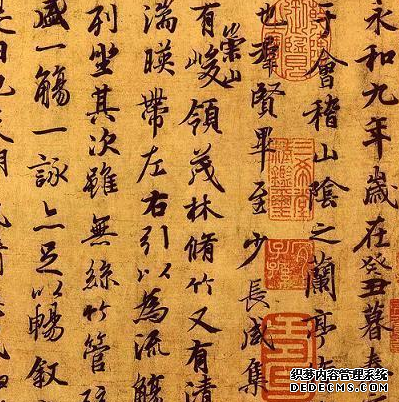 永和九年歲在癸丑暮春
于會稽山陰之蘭亭
也羣賢畢至少長咸集
有崇山峻領茂林脩竹又有清
湍暎帶左右引以為流觴
列坐其次雖無絲竹管弦
盛一觴一詠亦足以暢叙
是日也天朗氣清
三希堂精鑑璽
宜子孫
织梦内容管理系统
DEDECMS.COM